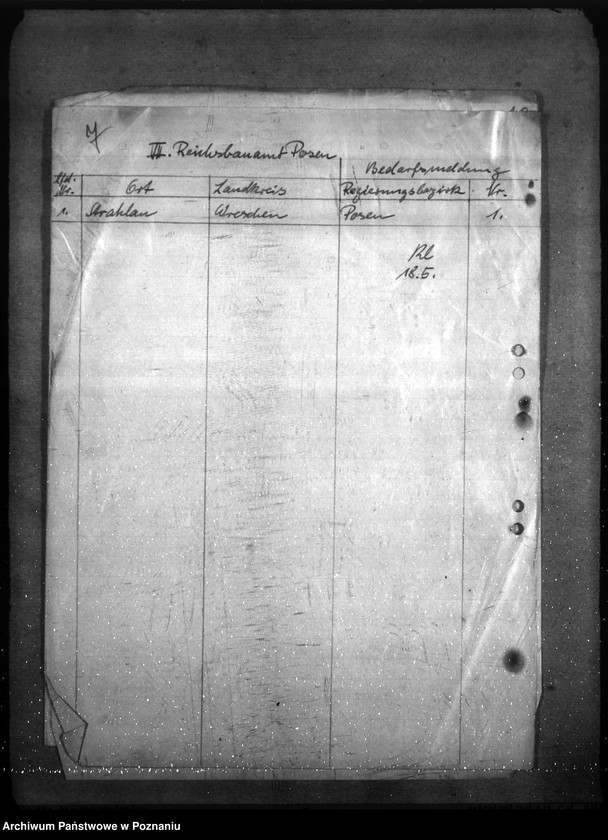 7
III. Reichsbauamt Posen
Bedarfsmeldung
Lfd. Nr. Ort Landkreis Regierungsbezirk Nr.
1. Strahlau Wreschen Posen 1.
18.5.
Archiwum Państwowe w Poznaniu